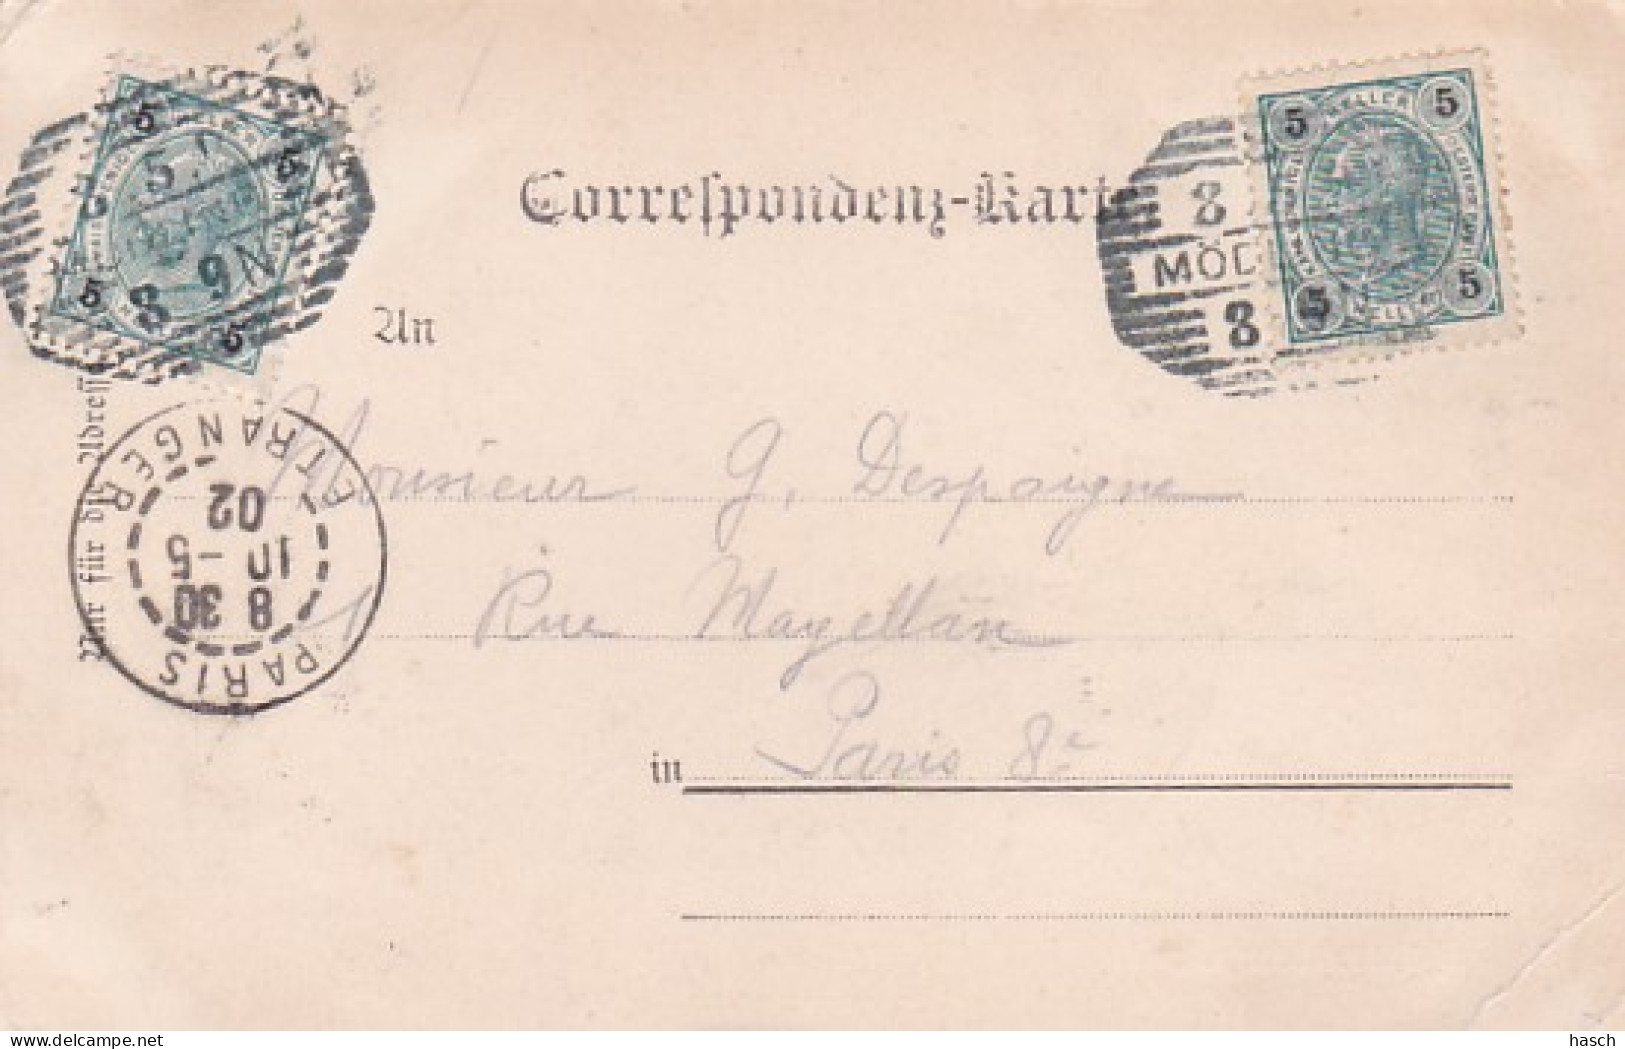 Correspondenz-Karte
8
MÖD
8
5 HELLER 5
5 HELLER 5
5 5
5 5
8 9N
An
Nur für die Adresse
Monsieur G. Despaigne
Rue Magellan
in Paris 8e
PARIS
8 30
10 -5
02
ETRANGER
hasch